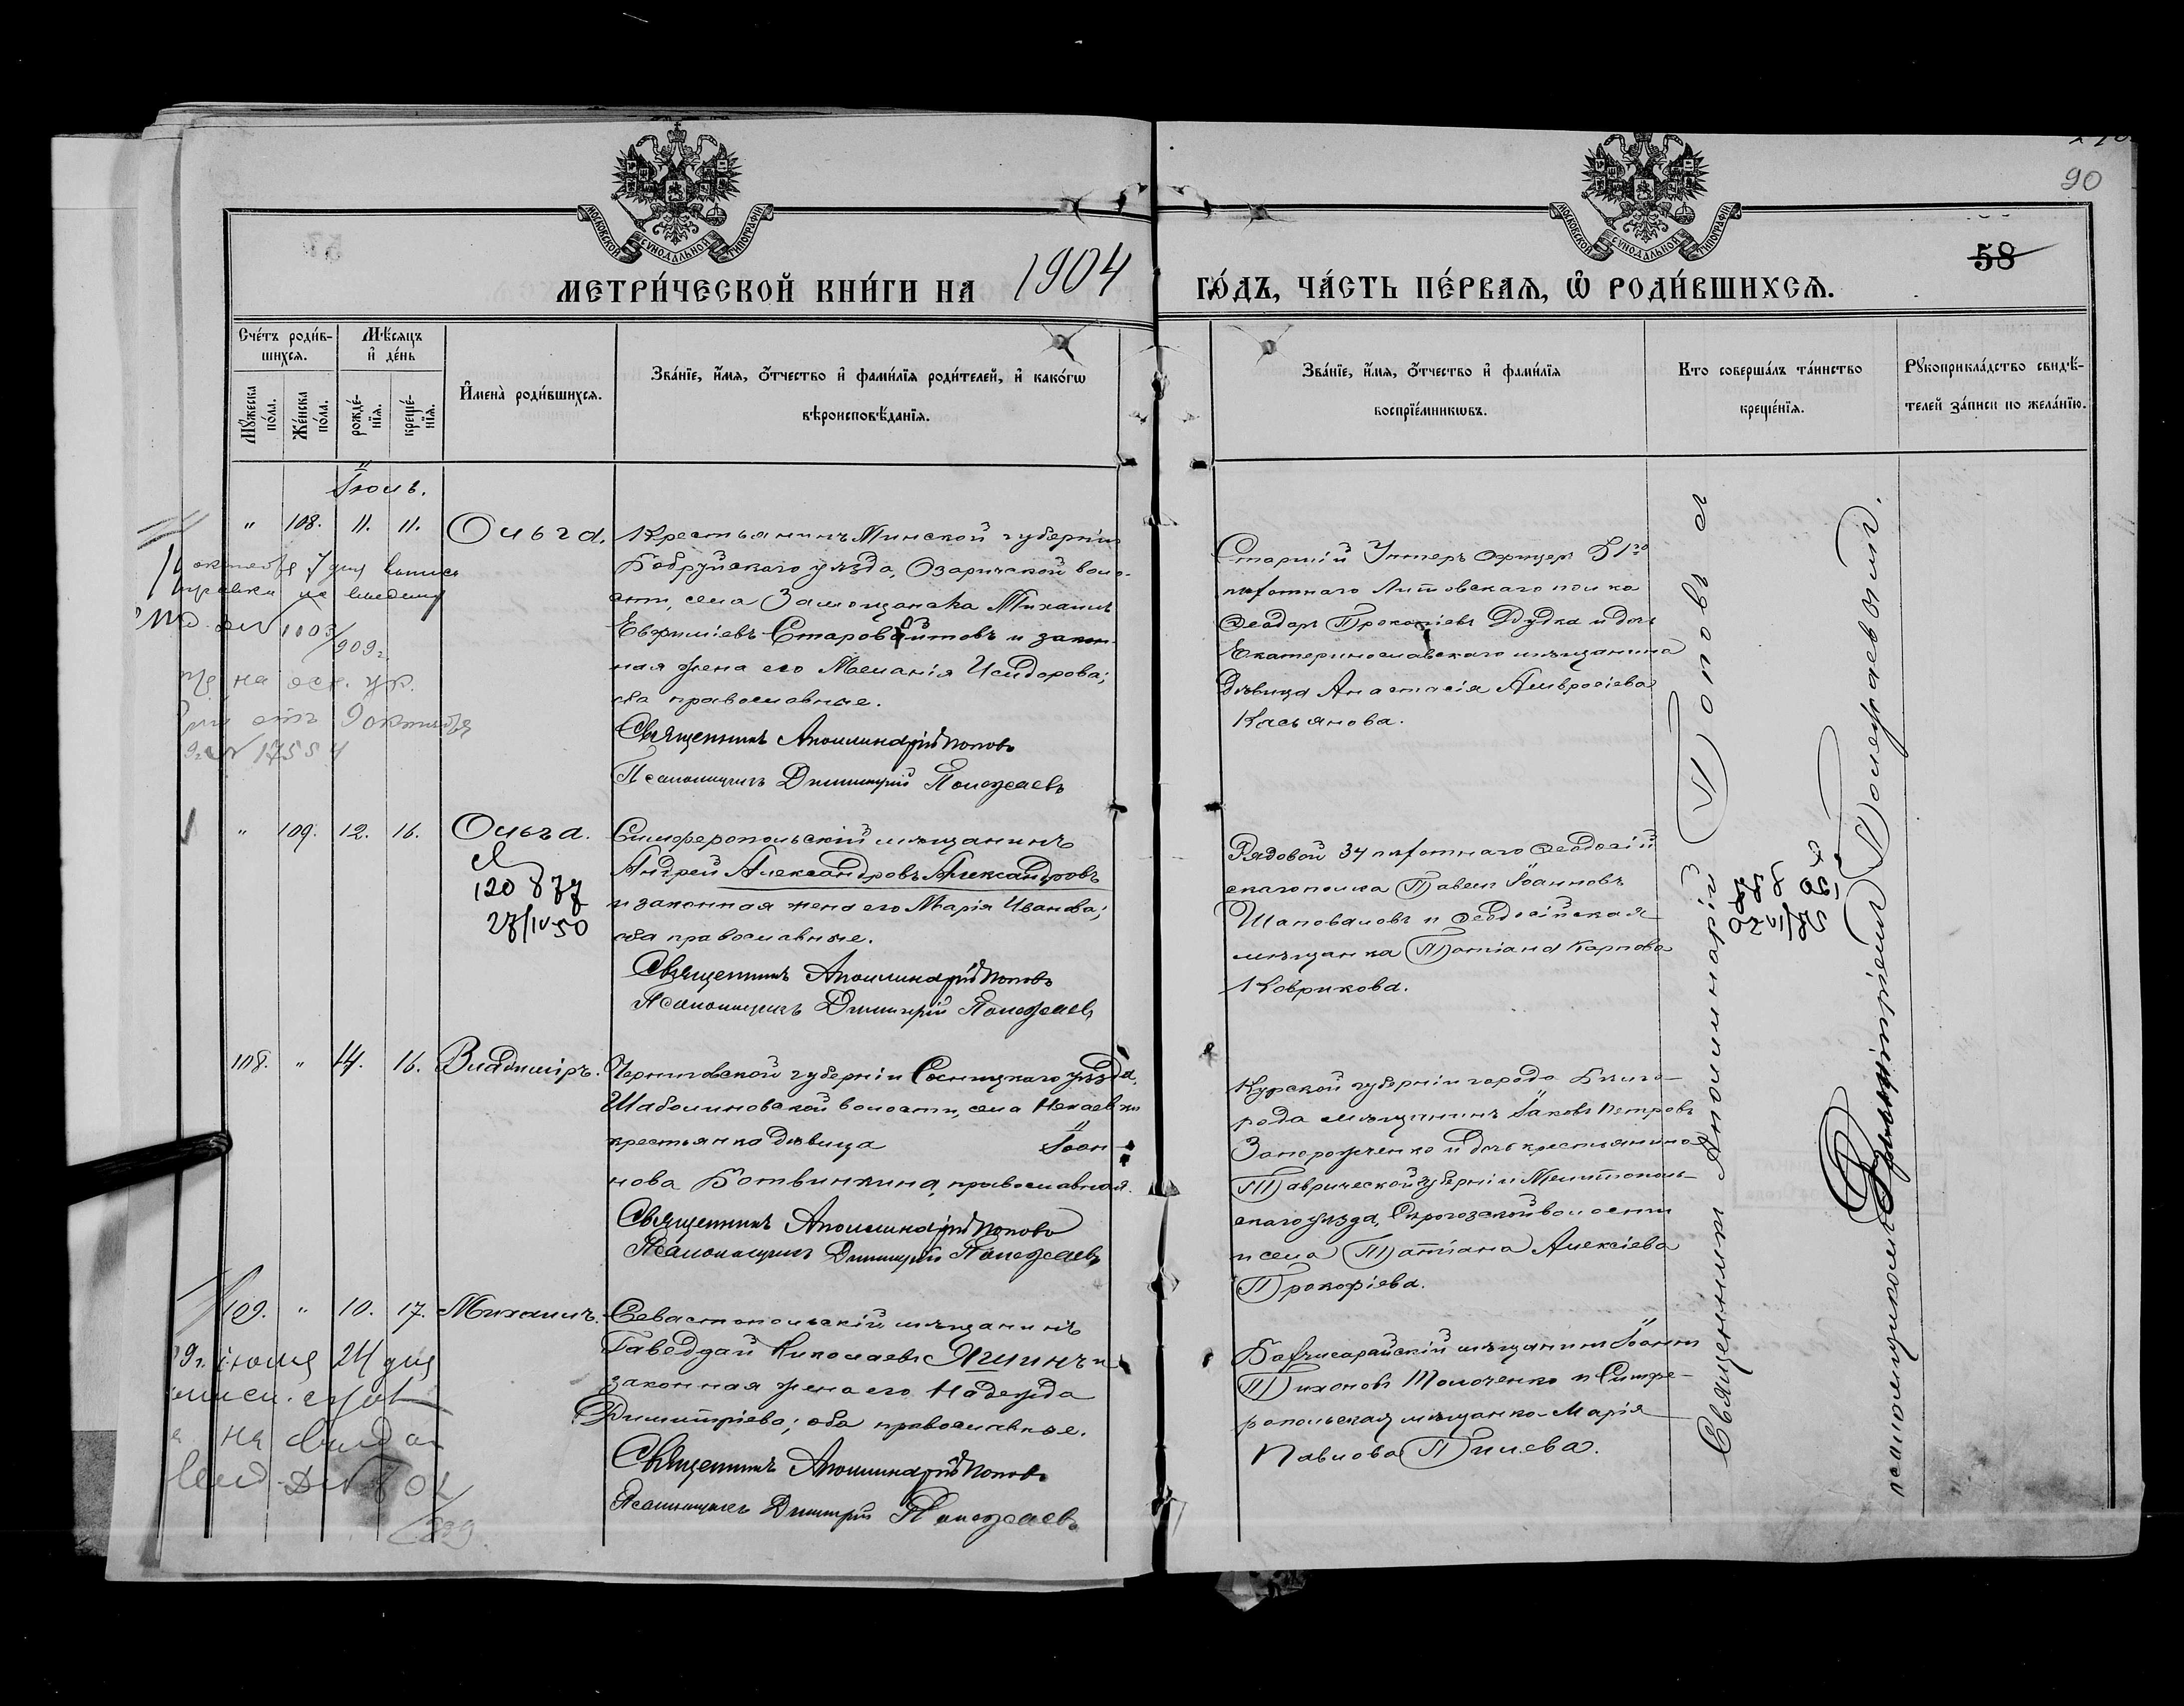 МОСКОВСКОЙ СУНОДАЛЬНОЙ ТИПОГРАФІИ
МОСКОВСКОЙ СУНОДАЛЬНОЙ ТИПОГРАФІИ
90
58
МЕТРИ́ЧЕСКОЙ КНИ́ГИ НА 1904 ГО́ДЪ, ЧА́СТЬ ПЕ́РВАЯ, Ѡ҆ РОДИ́ВШИХСЯ.
Сче́тъ роди́в-
шихся.
Мѣ́сяцъ
и҆ де́нь
Мꙋ́жеска по́ла.
Же́нска по́ла.
рожде́-нїя.
креще́-нїя.
И҆мена̀ роди́вшихся.
Зва́нїе, и҆́мя, ѻ҆́тчество и҆ фами́лїя роди́телей, и҆ како́гѡ
вѣроисповѣ́данїя.
Зва́нїе, и҆́мя, ѻ҆́тчество и҆ фами́лїя
воспрїе́мникѡвъ.
Кто соверша́лъ та́инство
креще́нїя.
Рꙋкоприкла́дство свидѣ́-
телей за́писи по жела́нїю.
Іюль.
" 108. 11. 11. Ольга.
Крестьянинъ Минской губерніи
Бобруйскаго уѣзда, Озаричской воло-
сти, села Замощанска Михаилъ
Евфиміевъ Старовойтовъ и закон-
ная жена его Меланія Исидорова;
оба православные.
Священникъ Аполлинарій Поповъ
Псаломщикъ Димитрій Положаевъ
Старшій Унтеръ Офицеръ 51го
пѣхотнаго Литовскаго полка
Ѳеодоръ Прокопіевъ Дудка и дочь
Екатеринославскаго мѣщанина
дѣвица Анастасія Амвросіева
Касьянова.
октября 7 дня
1003/909 г.
на осн. ук.
отъ 9 октября
№ 17584
" 109. 12. 16. Ольга.
120 877
27/IV 50
Симферопольскій мѣщанинъ
Андрей Александровъ Александровъ
и законная жена его Марія Иванова;
оба православные.
Священникъ Аполлинарій Поповъ
Псаломщикъ Димитрій Положаевъ
Рядовой 34 пѣхотнаго Ѳеодосій
скаго полка Павелъ Іоанновъ
Шаповаловъ и Ѳеодосійская
мѣщанка Татіана Карпова
Коврикова.
108. " 14. 16. Владиміръ.
Черниговской губерніи Сосницкаго уѣзда,
Шаболиновской волости, села Нехаевки
крестьянка дѣвица Іоан-
нова Ботвинкина, православная.
Священникъ Аполлинарій Поповъ
Псаломщикъ Димитрій Положаевъ
Курской губерніи города Бѣлго-
рода мѣщанинъ Іаковъ Петровъ
Запорожченко и дочь крестьянина
Таврической губерніи Мелитополь-
скаго уѣзда, Сѣрогозской волости
и села Татіана Алексіева
Прокофіева.
109. " 10. 17. Михаилъ.
Севастопольскій мѣщанинъ
Гаведдай Николаевъ Ягшинъ и
законная жена его Надежда
Димитріева; оба православные.
Священникъ Аполлинарій Поповъ
Псаломщикъ Димитрій Положаевъ
Бахчисарайскій мѣщанинъ Іоаннъ
Тихоновъ Толоченко и Симфе-
ропольская мѣщанка Марія
Павлова Гилева.
9 г. іюля 24 дня
Священникъ Аполлинарій Поповъ съ
псаломщикомъ Димитріемъ Положаевымъ.